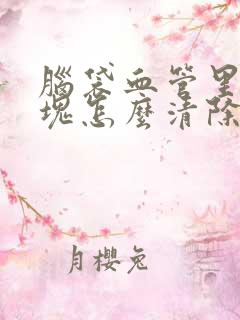 腦袋血管里
塊怎麼清除
月櫻兔